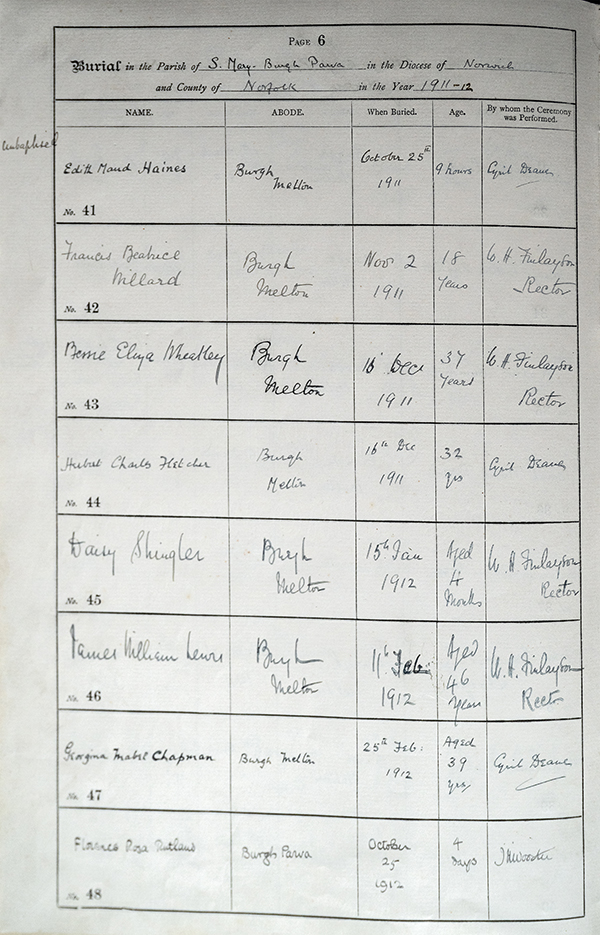 PAGE 6
Burial in the Parish of S. Mary- Burgh Parva in the Diocese of Norwich
and County of Norfolk in the Year 1911-12
NAME. ABODE. When Buried. Age. By whom the Ceremony was Performed.
unbaptised
Edith Maud Haines Burgh Melton October 25th 1911 9 hours Cyril Deane
No. 41
Francis Beatrice Willard Burgh Melton Nov 2 1911 18 Years W. H. Finlayson Rector
No. 42
Bessie Eliza Wheatley Burgh Melton 16 Dec 1911 37 Years W. H. Finlayson Rector
No. 43
Hubert Charles Fletcher Burgh Melton 16th Dec 1911 32 yrs Cyril Deane
No. 44
Daisy Shingler Burgh Melton 15th Jan 1912 Aged 4 Months W H Finlayson Rector
No. 45
James William Lewis Burgh Melton 11th Feb 1912 Aged 46 Years W. H. Finlayson Rector
No. 46
Georgina Mabel Chapman Burgh Melton 25th Feb: 1912 Aged 39 yrs Cyril Deane
No. 47
Florence Rosa Rutland Burgh Parva October 25 1912 4 Days
No. 48